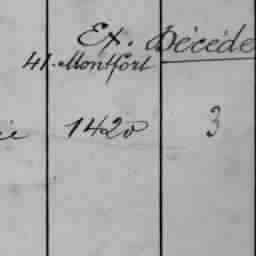 Ex. Décéde
41. Montfort
1420 3